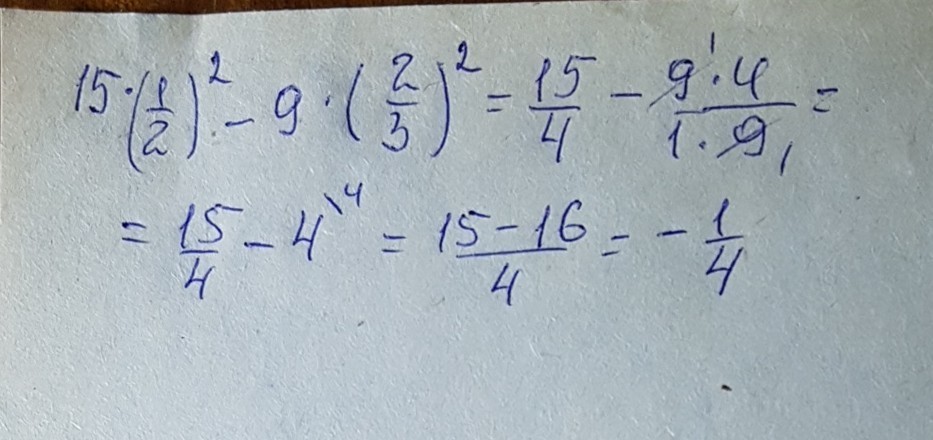 15·(1/2)² - 9·(2/3)² = 15/4 - 9¹·4/1·9₁ =
= 15/4 - 4\⁴ = 15-16/4 = - 1/4